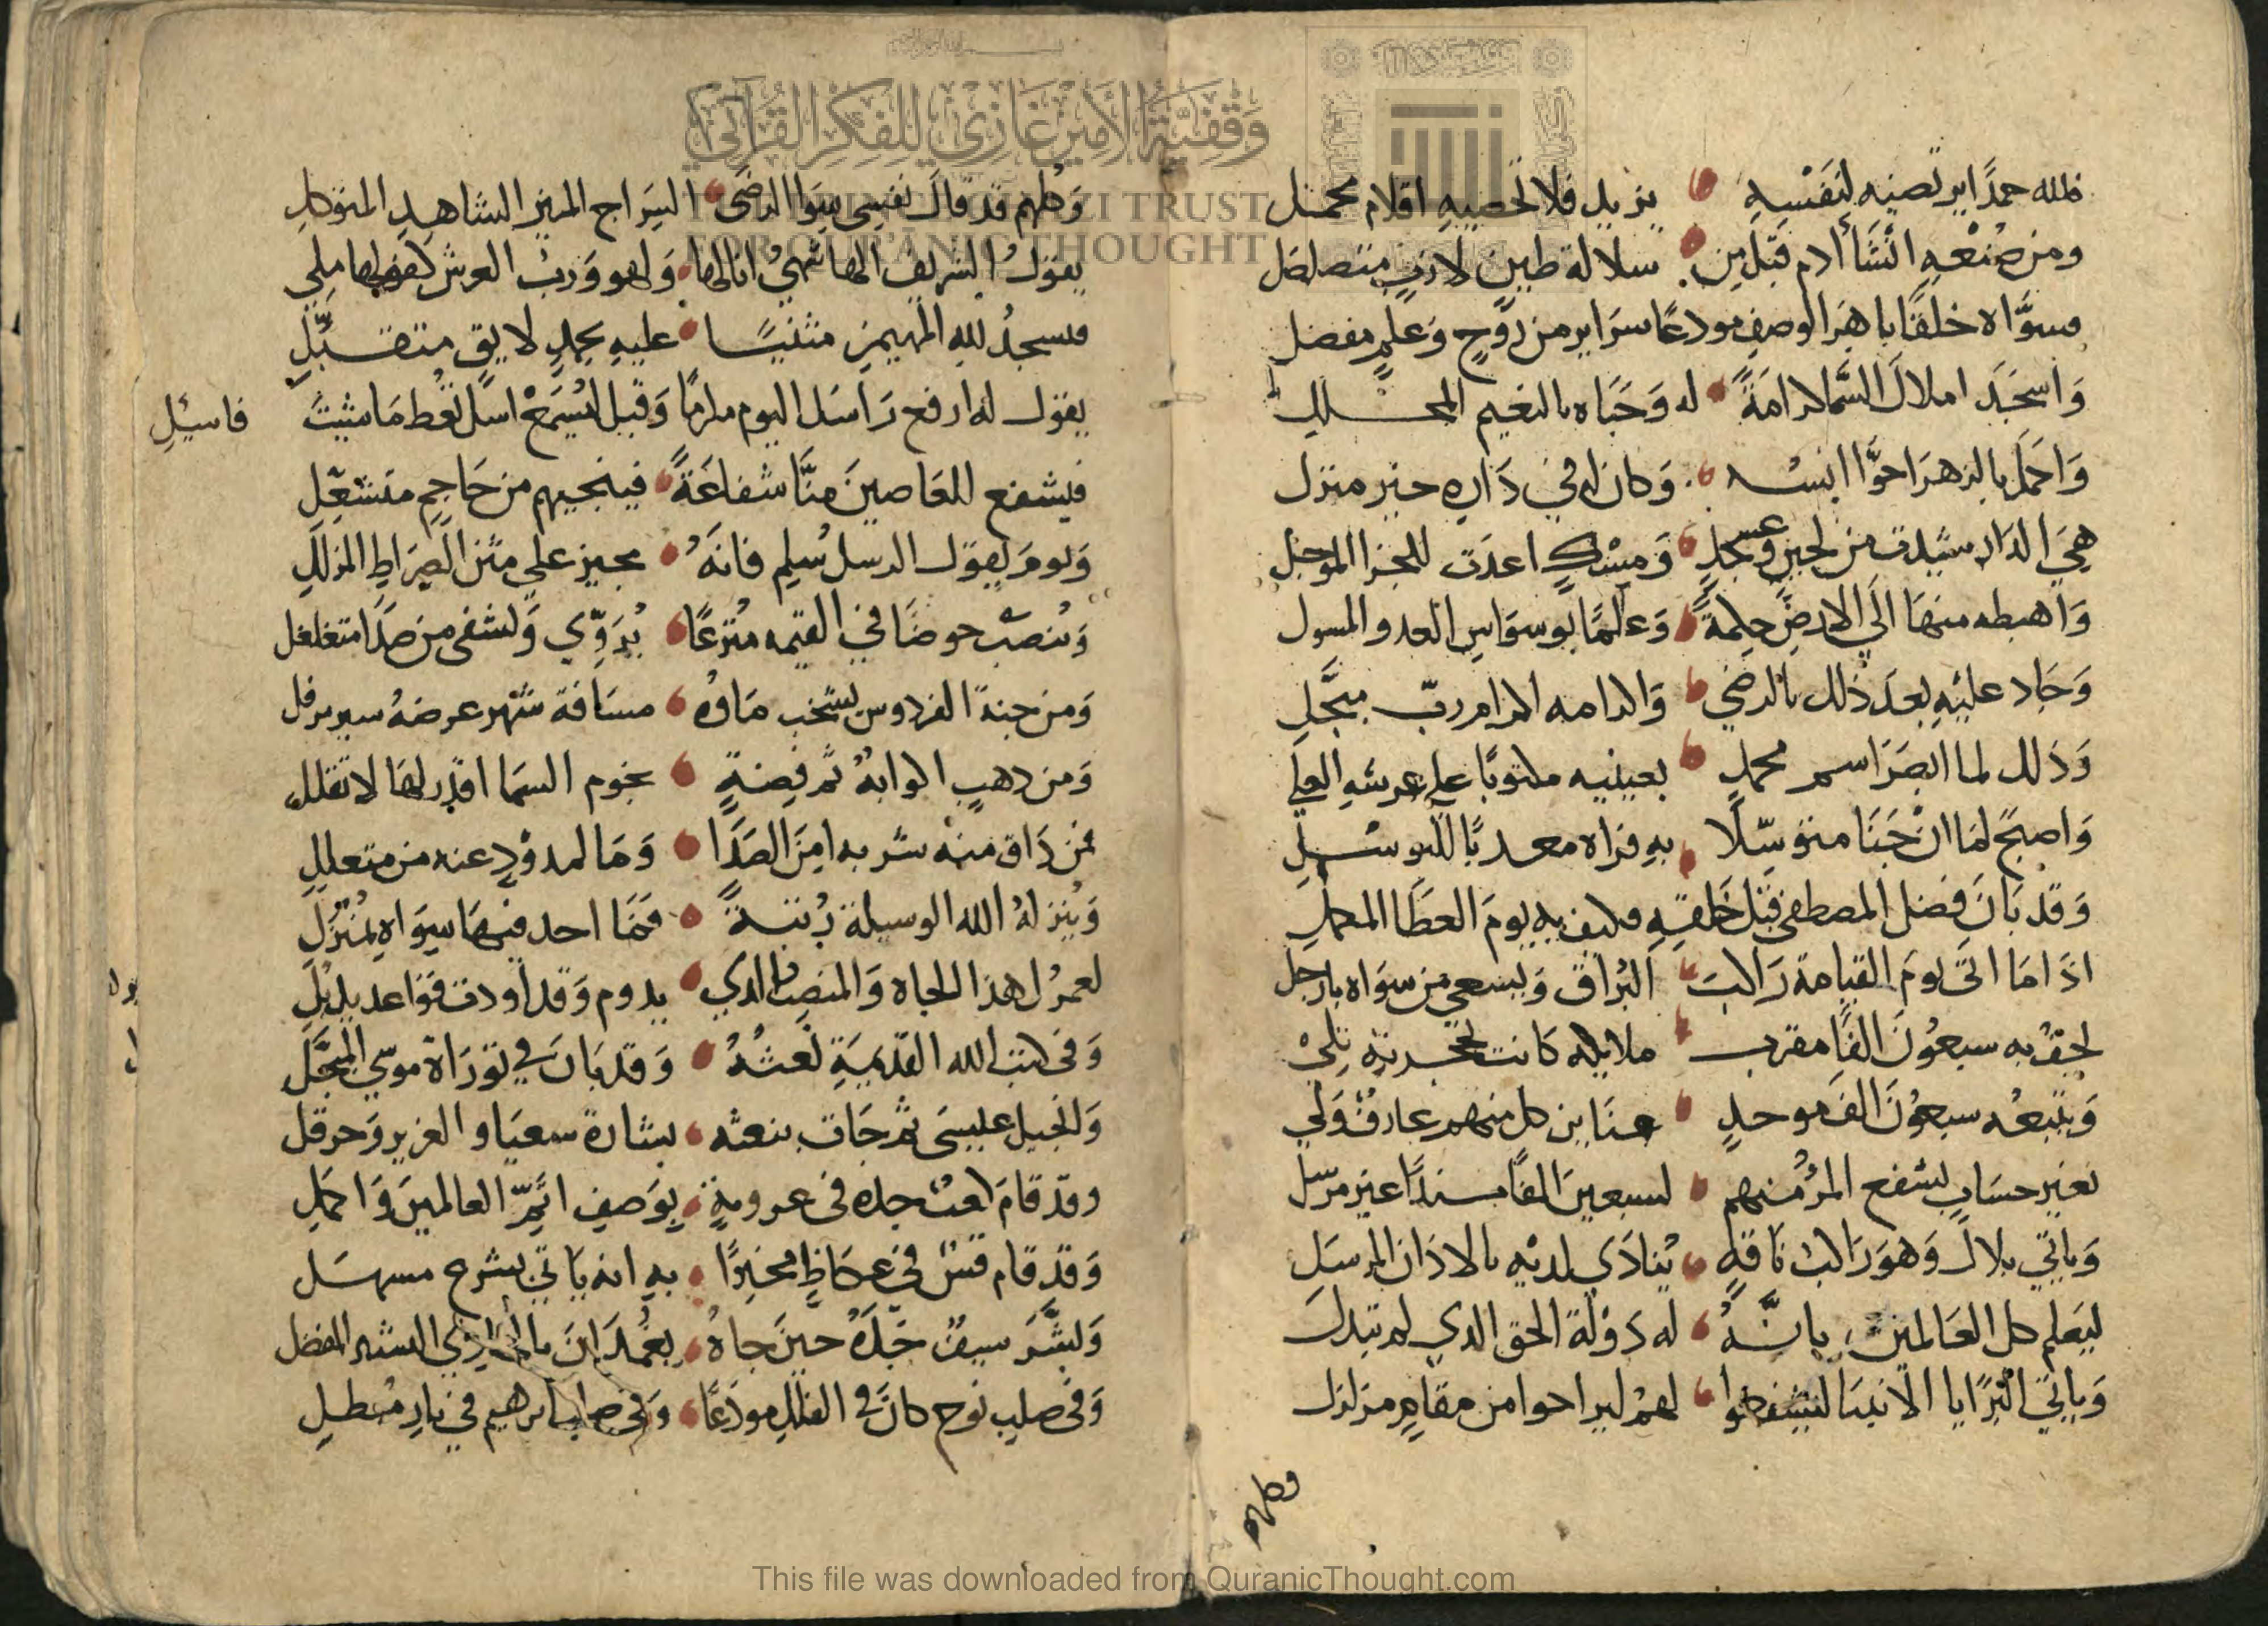 فلله حمدًا يرتضيه لنفسه يزيد فلا تحصيه اقلام محمل
ومن صنعه انشأ ادم قبل من سلالة طين لازب متصلصل
فسوّاه خلقًا باهر الوصف مودعًا سراير من روح وعلم مفصل
وأسجد املاك السما كرامةً له وحباه بالنعيم المحلل
واحمل بالزهرا حوّا انسه وكان له في داره خير منزل
هي الدار شيدت من لجين وعسجد ومسك اعدت للجزا الموجل
واهبطه منها الي الارض حكمةً وعلمًا بوسواس العدو المسول
وجاد عليه بعد ذلك بالرضي واكرمه اكرام ربّ مبجّل
وذلك لما ابصر اسم محمد بعينيه مكتوبًا علي عرشه العلي
واصبح لما ان جنا متوسّلًا به فراه معدنًا للتوسّل
وقد بان فضل المصطفي قبل خلقه فكيف به يوم العطا المكمل
اذا ما اتى يوم القيامة راكب البراق ويسعي من سواه بارجل
تحف به سبعون الفًا مقرب ملايكه كانت بخدمته تلي
ويتبعه سبعون الف موحد عنابن كل منهم عارف ولي
بغير حساب يشفع المرء منهم لسبعين الفًا مسندًا غير مرسل
وياتي بلال وهو راكب ناقةٍ ينادي لديه بالاذان المرسل
ليعلم كل العالمين بانّه له دولة الحق الذي لم تبدل
وياتي البرايا الانبيا ليشفعوا لهم ليراحوا من مقام مزلزل
وكلهم
وكلهم قد قال نفسي سوا الرضى السراج المنير الشاهد المتوكل
يقول الشريف الهاشمي انا لها ولهو ورب العرش كفو لها ملي
فيسجد لله المهيمن مثنيًا عليه بحمد لايق متقبّل
يقول له ارفع راسك اليوم مكرمًا وقل تسمع اسل تعط ما شيت فاسيل
فيشفع للعاصين منّا شفاعةً فينجيهم من حاجم متشعّل
ويوم يقول الرسل سلم فانه مجيز علي متن الصراط المزلل
وينصب حوضًا في القيمه مترعًا يروّي ويشفى من صدا متغلغل
ومن جنة الفردوس يشخب ماوه مسافة شهر عرضه سير مرقل
ومن ذهب اكوابه ثم فضةٍ نجوم السما اقدر لها لا تقلل
فمن ذاق منه شربه امن الصدا وما لمذود عنه من متعلل
وينزله الله الوسيلة رتبةً فما احد فيها سواه بمنزل
لعمرك هذا الجاه والمنصب الذي يدوم وقد اودت قواعد يذبل
وفى كتب الله القديمة نعته وقد بان في توراة موسي المبجّل
وانجيل عيسى ثم جات بنعته بشارة سعيا والعزير وحزقل
وقد قام كعب جده فى عروبةٍ بوصف ابرّ العالمين واكمل
وقد قام قس في عكاظ مخبرًا به انه ياتي بشرع مسهل
وبشّر سيف جدّه حين جاه بغمدان بالهادي البشير المفضل
وفى صلب نوح كان في الفلك مودعًا وفى صلب ابرهيم في نار مصطل
This file was downloaded from QuranicThought.com